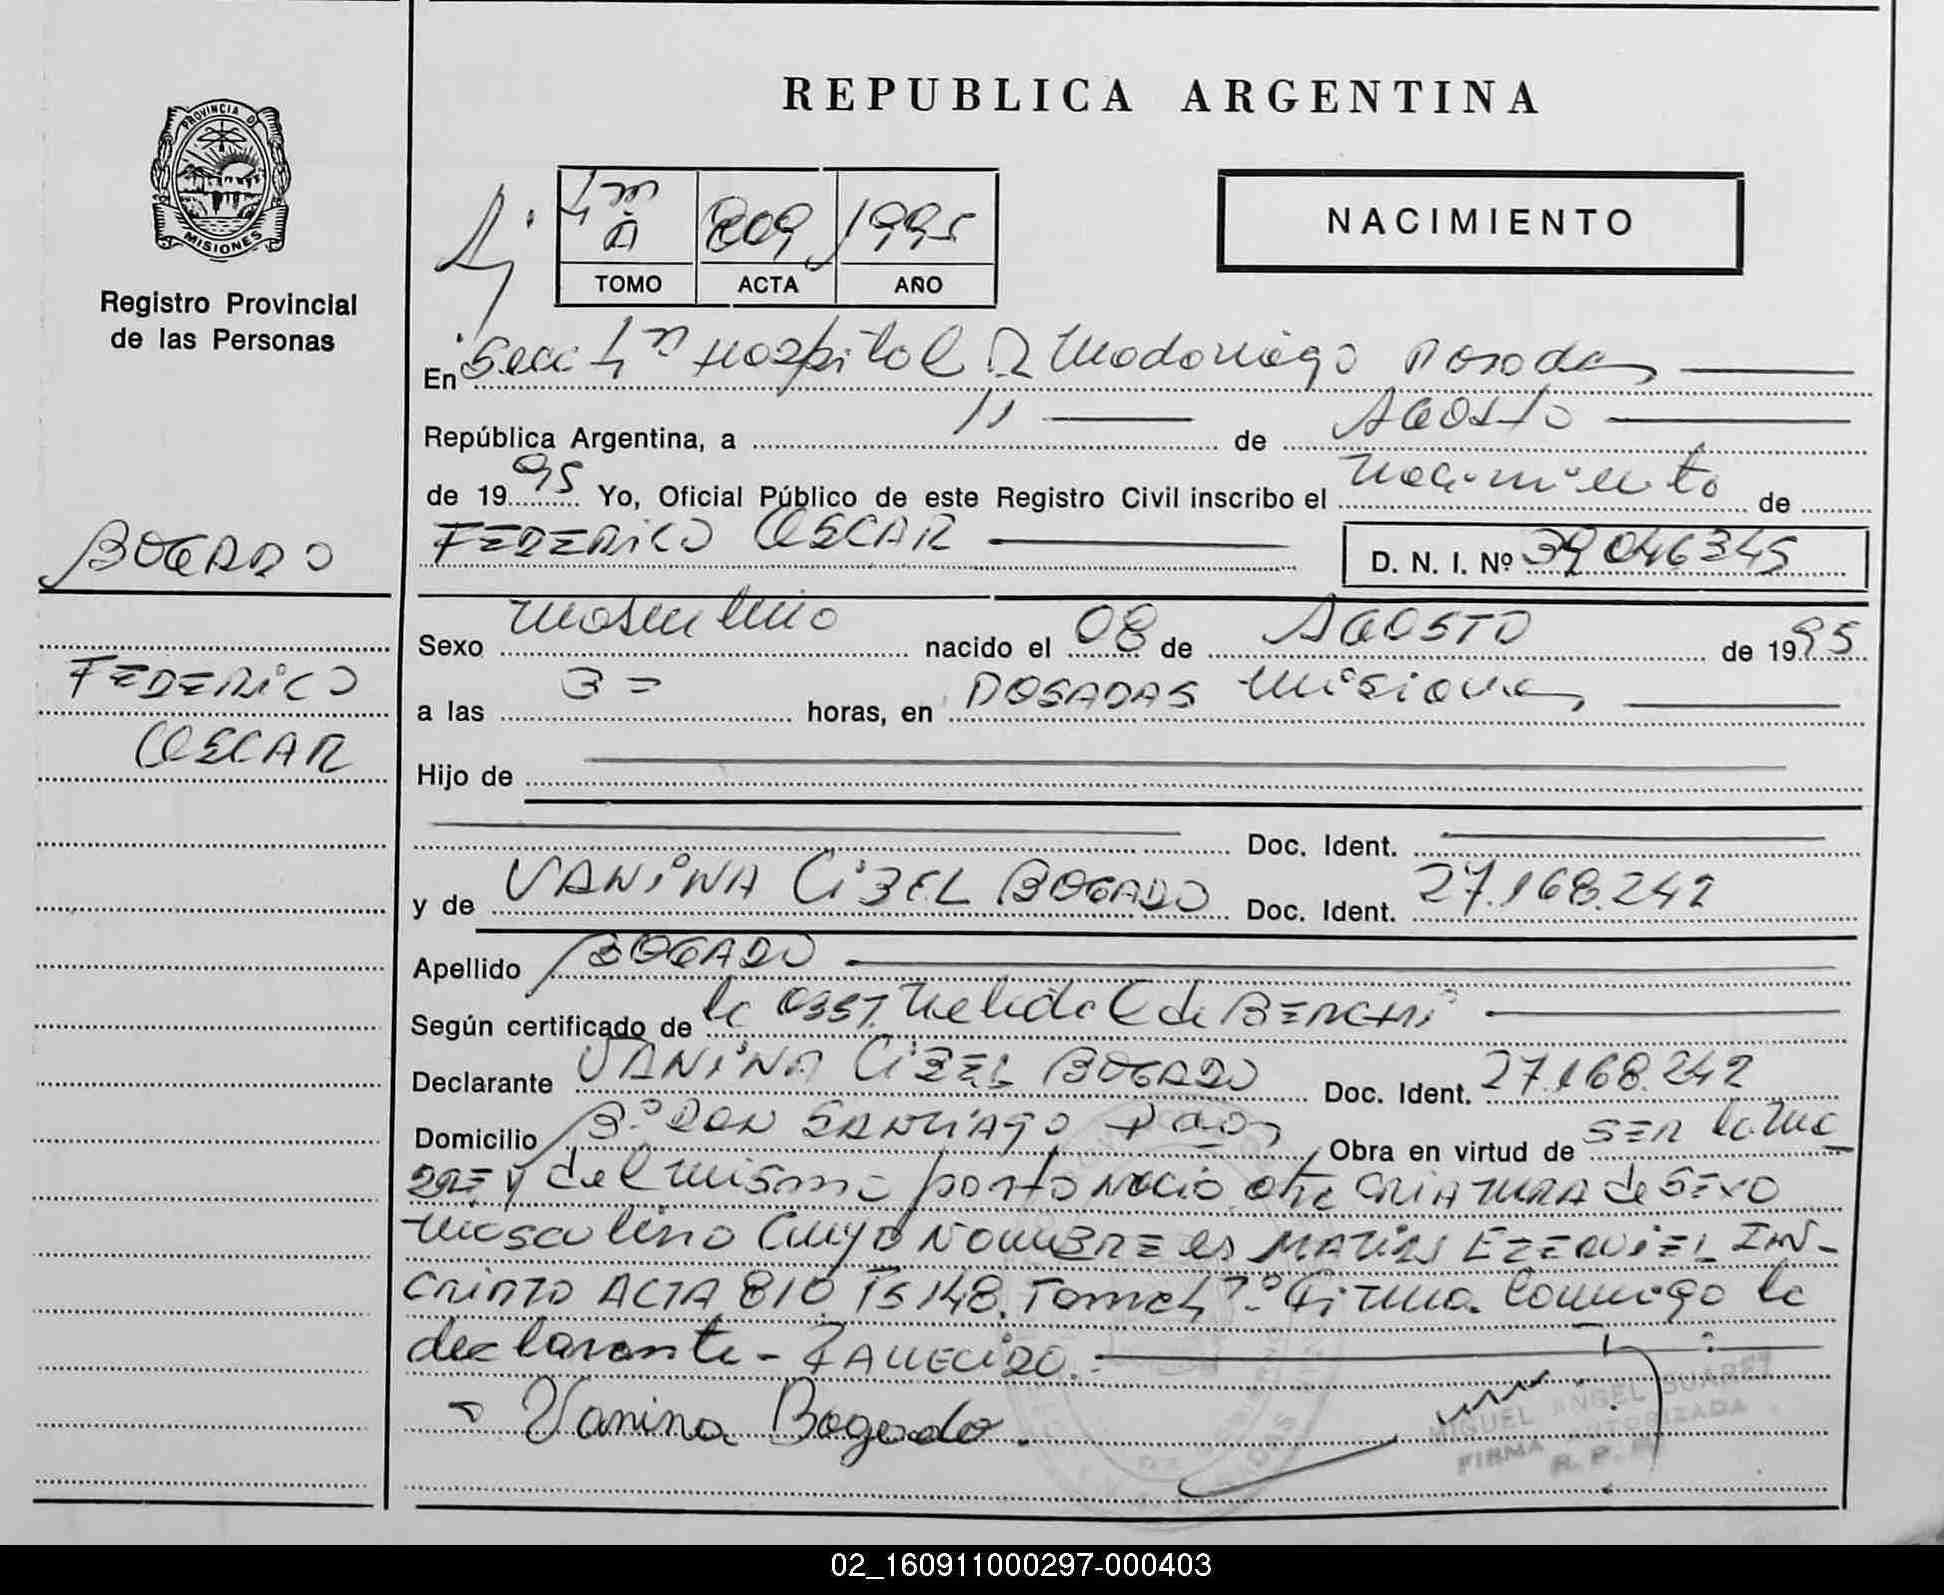 REPUBLICA ARGENTINA
PROVINCIA DE
MISIONES
Registro Provincial
de las Personas
809 1995
TOMO ACTA AÑO
NACIMIENTO
En Secc Hospital Dr Madariaga Posadas
República Argentina, a 11 de Agosto
de 1995 Yo, Oficial Público de este Registro Civil inscribo el nacimiento de
BOGADO
FEDERICO OSCAR D. N. I. Nº 39046345
Sexo masculino nacido el 08 de AGOSTO de 1995
FEDERICO
OSCAR
a las 3 = horas, en POSADAS Misiones
Hijo de
Doc. Ident.
y de VANINA CIBEL BOGADO Doc. Ident. 27.168.242
Apellido BOGADO
Según certificado de la OBST. Nelida C de BERCHI
Declarante VANINA CIBEL BOGADO Doc. Ident. 27.168.242
Domicilio Bº DON SANTIAGO Pdas Obra en virtud de SER la MA
DRE y del mismo parto nacio otra CRIATURA de SEXO
masculino Cuyo NOMBRE es MATIAS EZEQUIEL INS-
CRIPTO ACTA 810. Fs 148. Tomo Firma Conmigo la
declarante - FALLECIDO.-
Vanina Bogado.
MIGUEL ANGEL SUAREZ
FIRMA AUTORIZADA
R. P. P.
02_160911000297-000403